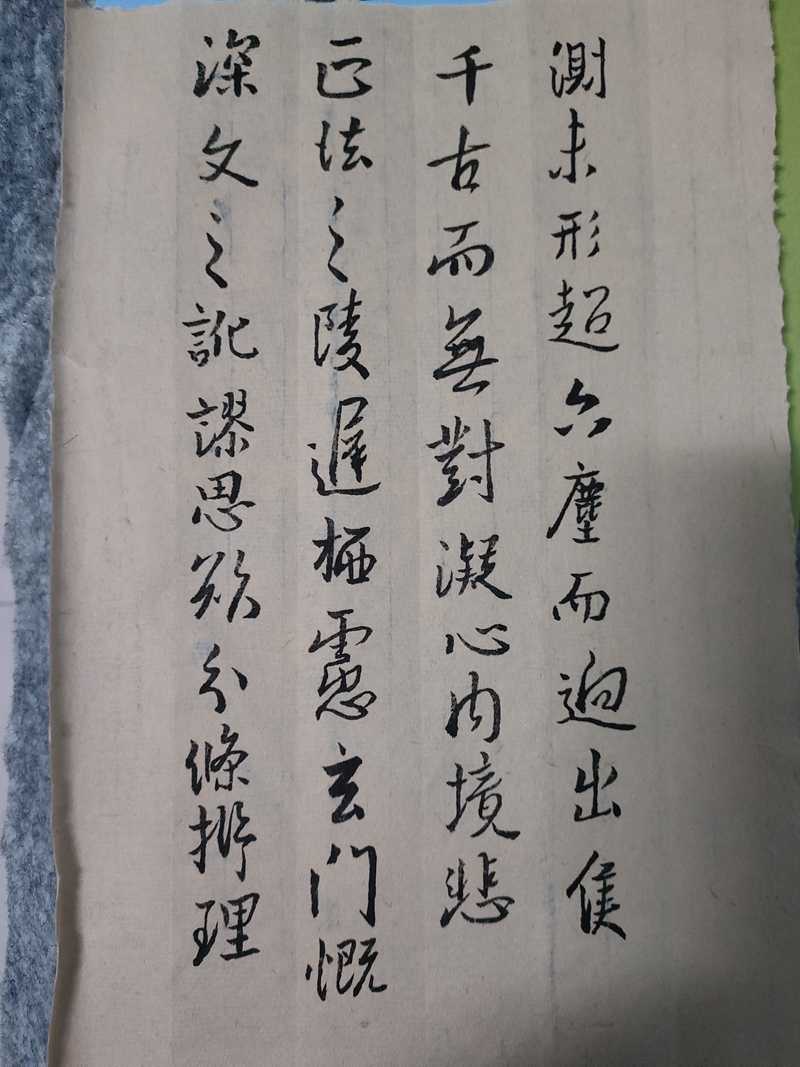 測未形超六塵而迥出隻
千古而無對凝心內境悲
正法之陵遲栖慮玄門慨
深文之訛謬思欲分條析理